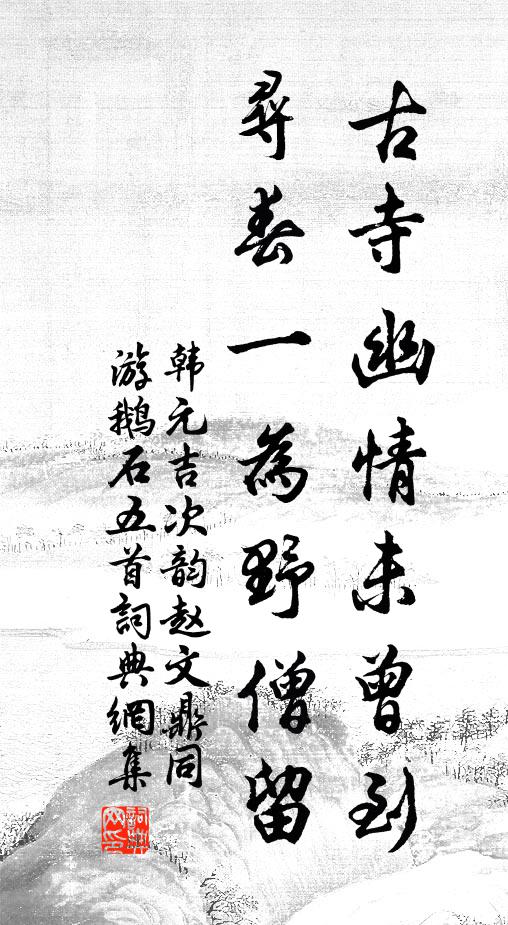 古寺幽情未曾到
尋春一為野僧留
韩元吉次韵赵文鼎同
游鹅石五首詞典網集
詞典網印